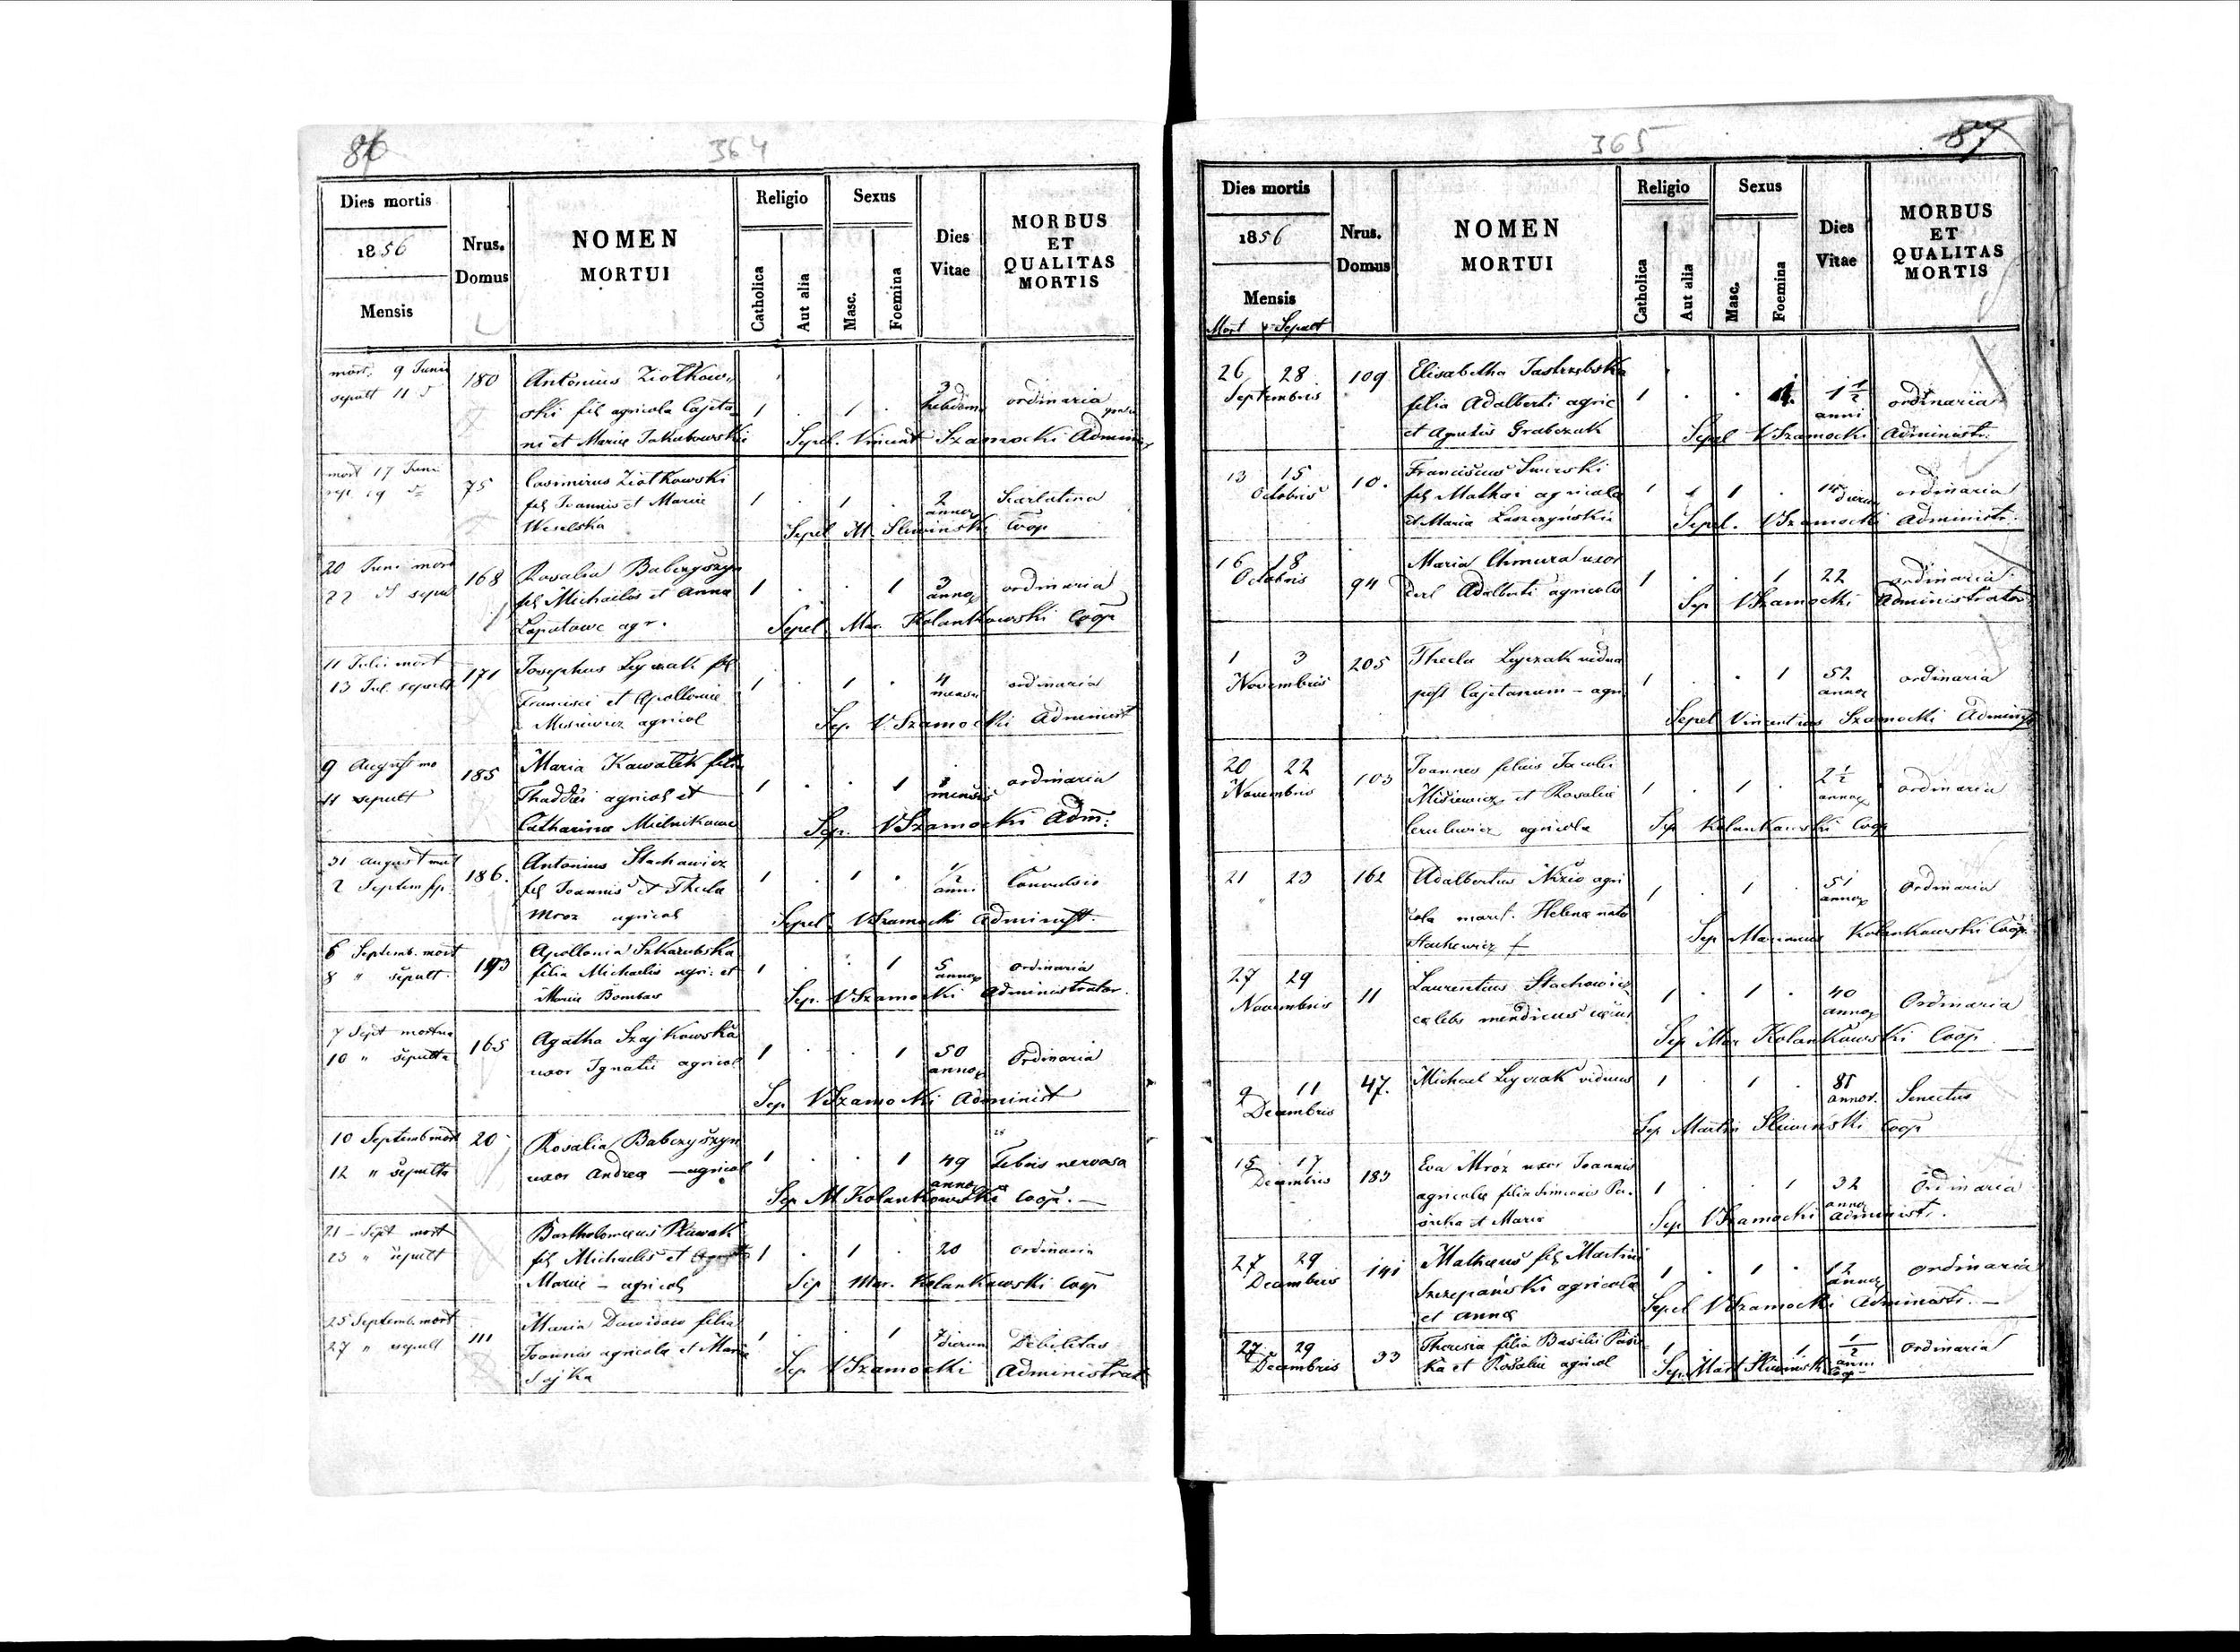 86
364
Dies mortis
1856
Mensis
Nrus.
Domus
NOMEN
MORTUI
Religio
Catholica
Aut alia
Sexus
Masc.
Foemina
Dies
Vitae
MORBUS
ET
QUALITAS
MORTIS
mort. 9 Junii 180 Antonius Ziołkow-
sepult 11 ski fil agricola Cajeta- 1 . 1 . 3 hebdom ordinaria
ni et Mariae Jakubowski Sepel. Vincent Szamocki Admin
mort 17 Juni 75 Casimirus Ziołkowski
sep. 19 fil Joannis et Mariae 1 . 1 . 2 annor Scarlatina
Weselska Sepel M. Sliwinski Coop
20 Juni mort 168 Rosalia Babczyszyn
22 sepul fil Michaelis et Anna 1 . . 1 3 annor ordinaria
Łapatowe agr. Sepel Mar. Kolankowski Coop
11 Julii mort 171 Josephus Lyczak fil
13 Jul. sepult Francisci et Apolloniae 1 . 1 . 4 mens ordinaria
Misiewicz agricol Sep. V Szamocki Administ
9 August mo 185 Maria Kawałek filia
11 sepult Thaddei agricol et 1 . . 1 mensis ordinaria
Catharinae Mielnikowe Sep. V Szamocki Adm:
31 August mort 186. Antonius Stachowicz
2 Septem sep. fil Joannis et Thecla 1 . 1 . 1/2 anni Convulsio
Mroz agricol Sepel. V Szamocki Administ.
6 Septemb. mort 193 Apollonia Szkarubska
8 " sepult. filia Michaelis agri: et 1 . . 1 5 annor ordinaria
Mariae Bombas Sep. V Szamocki Administrator.
7 Sept mortua 165 Agatha Szajkowska
10 " sepulta uxor Ignatii agricol 1 . . 1 50 annor Ordinaria
Sep V Szamocki Administ
10 Septemb mort 20 Rosalia Babczyszyn
12 " sepulta uxor Andrea — agricol 1 . . 1 49 annor Febris nervosa
Sep M Kolankowski Coop. —
21 — Sept mort Bartholomaeus Pluwak
23 " sepult fil Michaelis et 1 . 1 . 20 ordinaria
Mariae — agricol Sep Mar. Kolankowski Coop
25 Septemb. mort 111 Maria Dawidow filia
27 " sepult Joannis agricola et Maria 1 . . 1 7 dierum Debilitas
Sajka Sep V Szamocki Administrat
365
87
Dies mortis
1856
Mensis
Mort Sepult
Nrus.
Domus
NOMEN
MORTUI
Religio
Catholica
Aut alia
Sexus
Masc.
Foemina
Dies
Vitae
MORBUS
ET
QUALITAS
MORTIS
26 28 109 Elisabetha Jastrzębska
Septembris filia Adalberti agric 1 . . 1 1 1/2 anni ordinaria
et Agnetis Grabczak Sepel V Szamocki Administr.
13 15 10. Franciscus Swirski
Octobris fil Mathei agricola 1 . 1 . 14 dierum ordinaria
et Maria Laszczyńskie Sepel. V Szamocki Administr.
16 18 Maria Chmura uxor
Octobris 94 Adalberti agricola 1 . . 1 22 ordinaria
Sep V Szamocki Administrator
1 3 205 Thecla Lyczak vidua
Novembris post Cajetanum — agri 1 . . 1 52 annor ordinaria
Sepel Vincentius Szamocki Administ
20 22 103 Joannes filius Jacobi
Novembris Misiewicz et Rosaliae 1 . 1 . 2 1/2 annor ordinaria
Cerulewicz agricola Sep Kolankowski Coop
21 23 162 Adalbertus Nizio agri
" cola marit. Helena nata 1 . 1 . 51 annor ordinaria
Stachowicz Sep Marianus Kolankowski Coop.
27 29 11 Laurentius Stachowicz
Novembris caelebs mendicus 1 . 1 . 40 annor Ordinaria
Sep Mar Kolankowski Coop
9 11 47. Michael Lyczak viduus 1 . 1 . 81 annor. Senectus
Decembris
Sep Martin Sliwiński Coop
15 17 183 Eva Mróz uxor Joannis
Decembris agricolae filia Simeonis Pa- 1 . . 1 32 annor Ordinaria
et Maria Sep V Szamocki Administ.
27 29 141 Mathaeus fil Martini
Decembris Szczepański agricola 1 . 1 . 12 annor Ordinaria
et Anna Sepel V Szamocki Administr. —
27 29 33 Theresia filia Basilii Pasie
Decembris ka et Rosaliae agricol 1 . . 1 1/2 anni ordinaria
Sep. Mart Sliwinski Coop